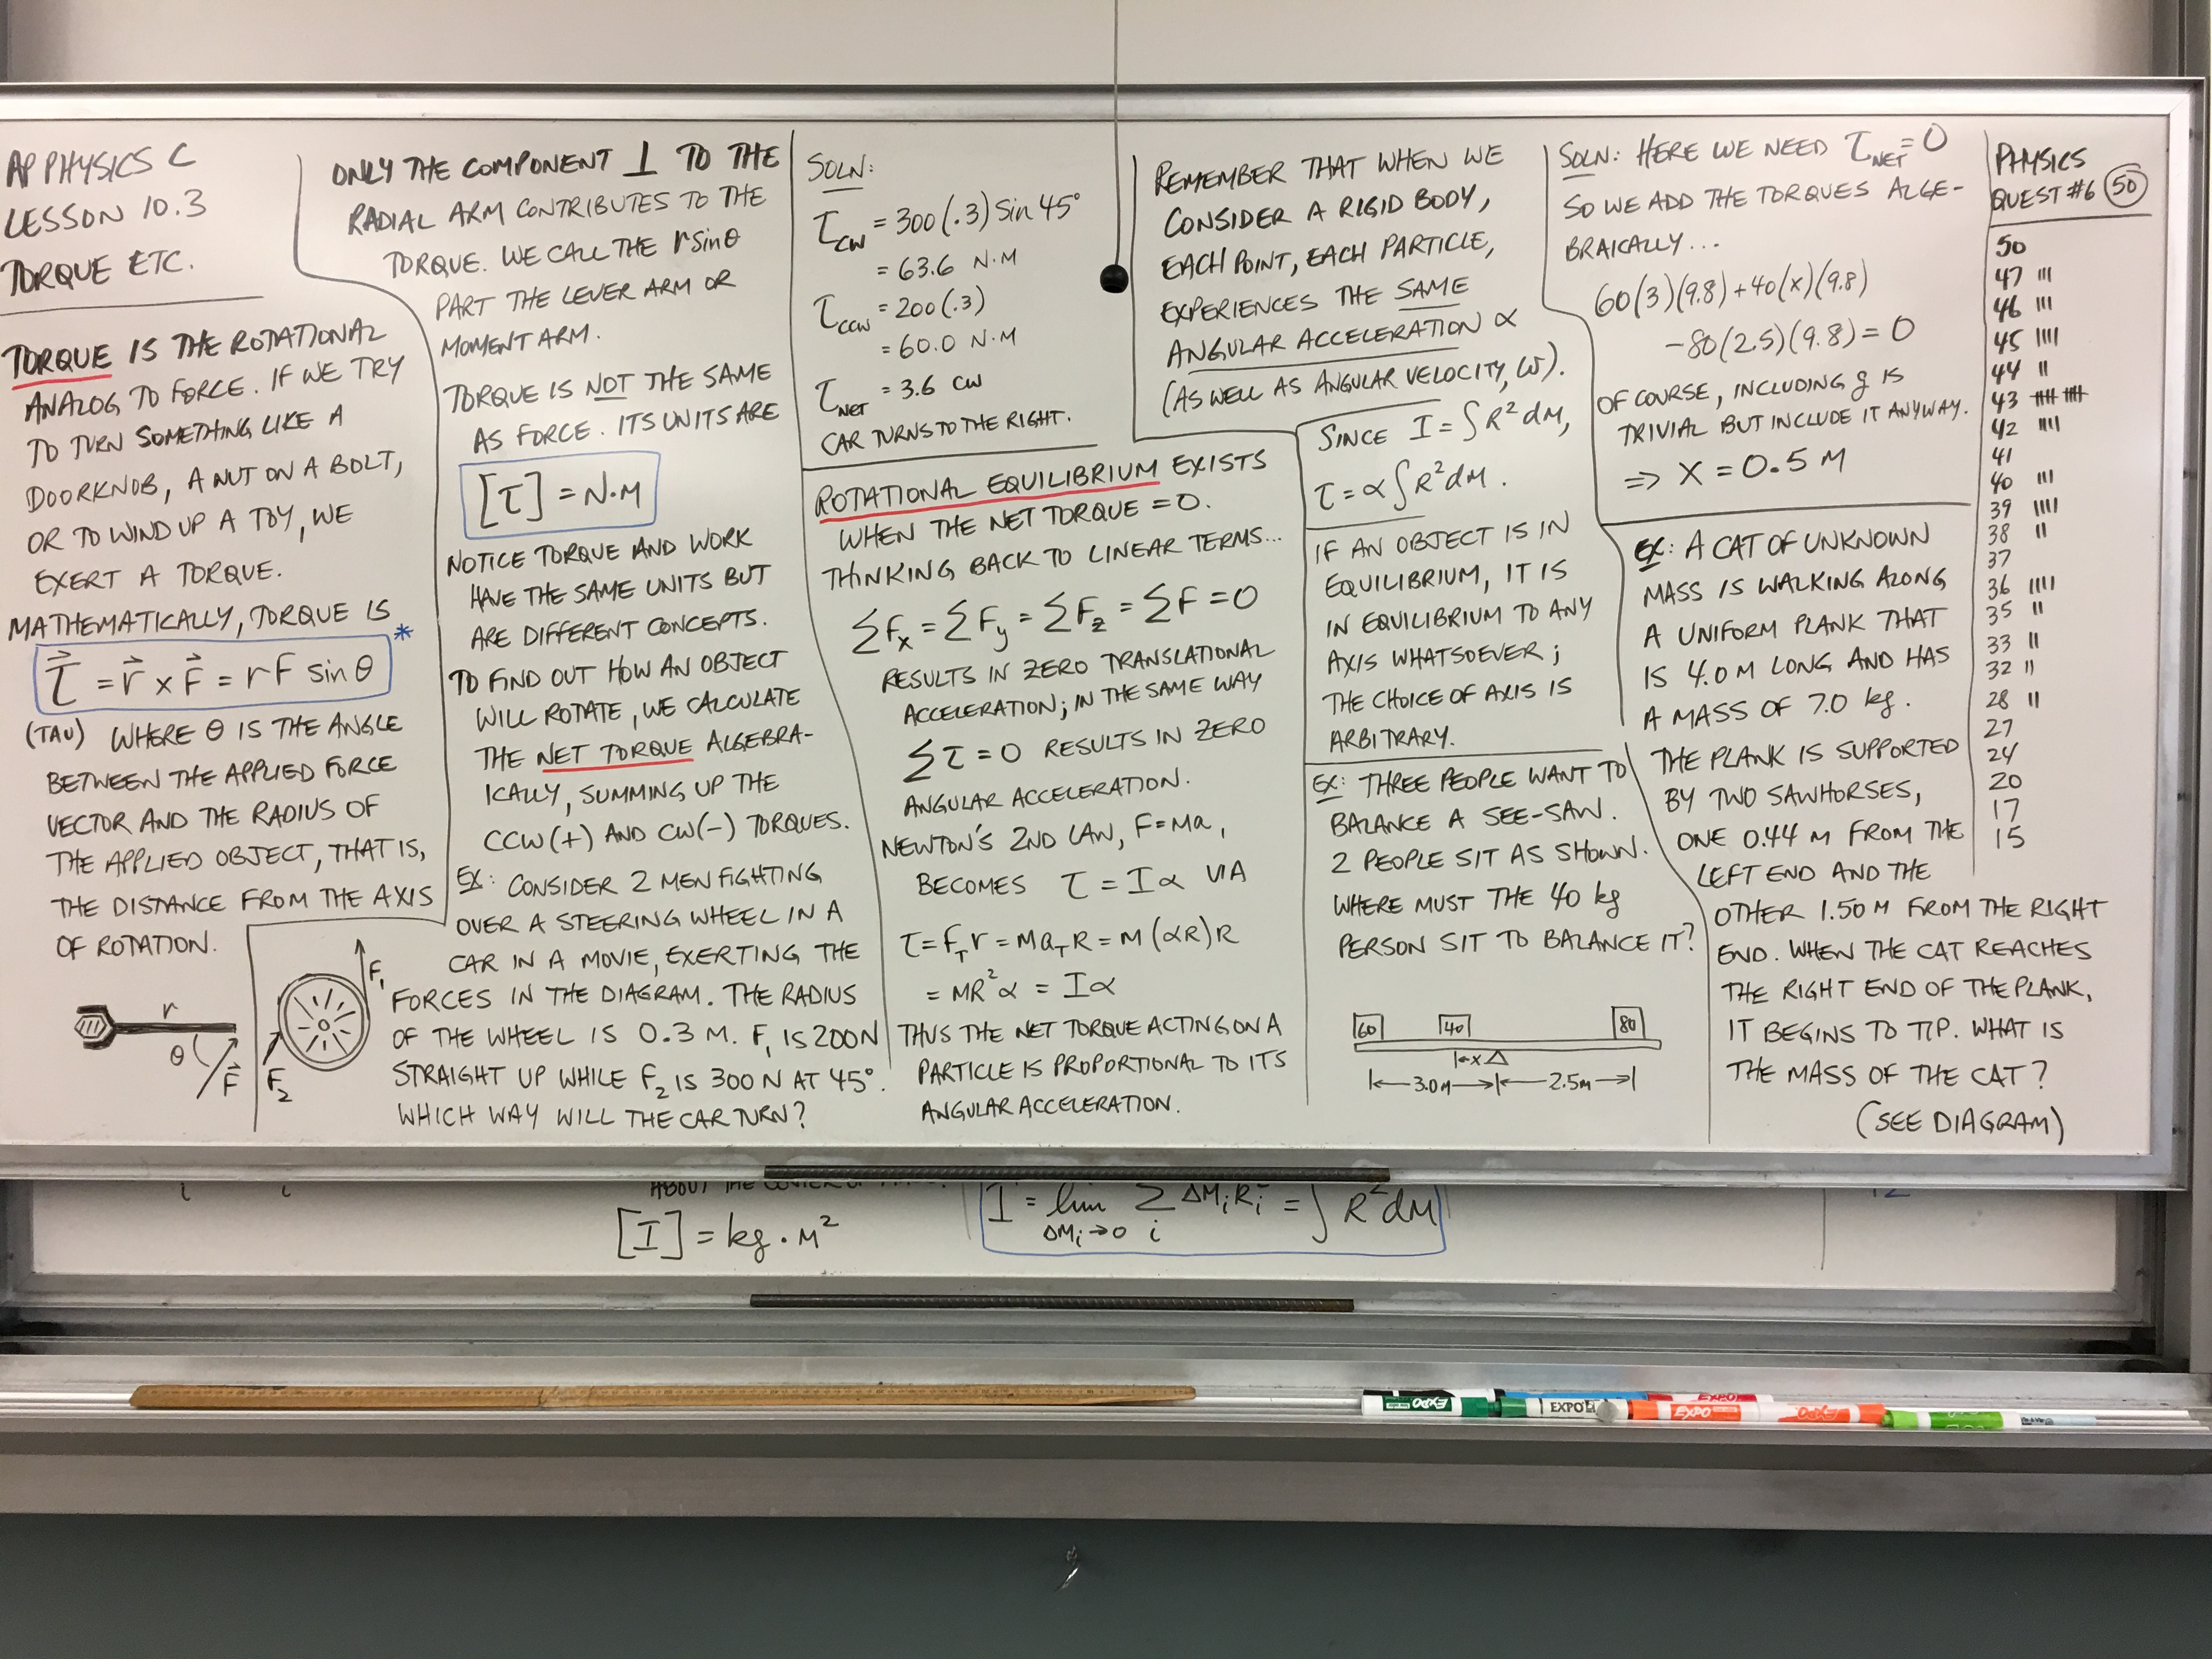 AP PHYSICS C
LESSON 10.3
TORQUE ETC.
TORQUE IS THE ROTATIONAL
ANALOG TO FORCE. IF WE TRY
TO TURN SOMETHING LIKE A
DOORKNOB, A NUT ON A BOLT,
OR TO WIND UP A TOY, WE
EXERT A TORQUE.
MATHEMATICALLY, TORQUE IS
τ⃗ = r⃗ × F⃗ = rF sin θ *
(TAU) WHERE θ IS THE ANGLE
BETWEEN THE APPLIED FORCE
VECTOR AND THE RADIUS OF
THE APPLIED OBJECT, THAT IS,
THE DISTANCE FROM THE AXIS
OF ROTATION.
r
θ
F⃗
ONLY THE COMPONENT ⊥ TO THE
RADIAL ARM CONTRIBUTES TO THE
TORQUE. WE CALL THE r sin θ
PART THE LEVER ARM OR
MOMENT ARM.
TORQUE IS NOT THE SAME
AS FORCE. ITS UNITS ARE
[τ] = N·M
NOTICE TORQUE AND WORK
HAVE THE SAME UNITS BUT
ARE DIFFERENT CONCEPTS.
TO FIND OUT HOW AN OBJECT
WILL ROTATE, WE CALCULATE
THE NET TORQUE ALGEBRA-
ICALLY, SUMMING UP THE
CCW(+) AND CW(-) TORQUES.
EX: CONSIDER 2 MEN FIGHTING
OVER A STEERING WHEEL IN A
CAR IN A MOVIE, EXERTING THE
FORCES IN THE DIAGRAM. THE RADIUS
OF THE WHEEL IS 0.3 M. F₁ IS 200N
STRAIGHT UP WHILE F₂ IS 300 N AT 45°.
WHICH WAY WILL THE CAR TURN?
F₁
F₂
SOLN:
τ_CW = 300(.3) Sin 45°
= 63.6 N·M
τ_CCW = 200(.3)
= 60.0 N·M
τ_NET = 3.6 CW
CAR TURNS TO THE RIGHT.
ROTATIONAL EQUILIBRIUM EXISTS
WHEN THE NET TORQUE = 0.
THINKING BACK TO LINEAR TERMS...
ΣFx = ΣFy = ΣFz = ΣF = 0
RESULTS IN ZERO TRANSLATIONAL
ACCELERATION; IN THE SAME WAY
Στ = 0 RESULTS IN ZERO
ANGULAR ACCELERATION.
NEWTON'S 2ND LAW, F=Ma,
BECOMES τ = Iα VIA
τ = F_T r = M a_T R = M(αR)R
= MR²α = Iα
THUS THE NET TORQUE ACTING ON A
PARTICLE IS PROPORTIONAL TO ITS
ANGULAR ACCELERATION.
REMEMBER THAT WHEN WE
CONSIDER A RIGID BODY,
EACH POINT, EACH PARTICLE,
EXPERIENCES THE SAME
ANGULAR ACCELERATION α
(AS WELL AS ANGULAR VELOCITY, ω).
SINCE I = ∫R²dM,
τ = α∫R²dM.
IF AN OBJECT IS IN
EQUILIBRIUM, IT IS
IN EQUILIBRIUM TO ANY
AXIS WHATSOEVER;
THE CHOICE OF AXIS IS
ARBITRARY.
EX: THREE PEOPLE WANT TO
BALANCE A SEE-SAW.
2 PEOPLE SIT AS SHOWN.
WHERE MUST THE 40 kg
PERSON SIT TO BALANCE IT?
60 40 80
x
3.0M 2.5M
SOLN: HERE WE NEED τ_NET = 0
SO WE ADD THE TORQUES ALGE-
BRAICALLY...
60(3)(9.8) + 40(x)(9.8)
-80(2.5)(9.8) = 0
OF COURSE, INCLUDING g IS
TRIVIAL BUT INCLUDE IT ANYWAY.
⇒ X = 0.5 M
EX: A CAT OF UNKNOWN
MASS IS WALKING ALONG
A UNIFORM PLANK THAT
IS 4.0 M LONG AND HAS
A MASS OF 7.0 kg.
THE PLANK IS SUPPORTED
BY TWO SAWHORSES,
ONE 0.44 M FROM THE
LEFT END AND THE
OTHER 1.50 M FROM THE RIGHT
END. WHEN THE CAT REACHES
THE RIGHT END OF THE PLANK,
IT BEGINS TO TIP. WHAT IS
THE MASS OF THE CAT?
(SEE DIAGRAM)
PHYSICS
QUEST #6 50
50
47 |||
46 |||
45 ||||
44 ||
43 𝍸 𝍸
42 ||||
41
40 |||
39 ||||
38 ||
37
36 ||||
35 ||
33 ||
32 ||
28 ||
27
24
20
17
15
[I] = kg·M²
I = lim ΔMᵢ→0 Σᵢ ΔMᵢRᵢ² = ∫R²dM
EXPO
EXPO
EXPO
EXPO
EXPO